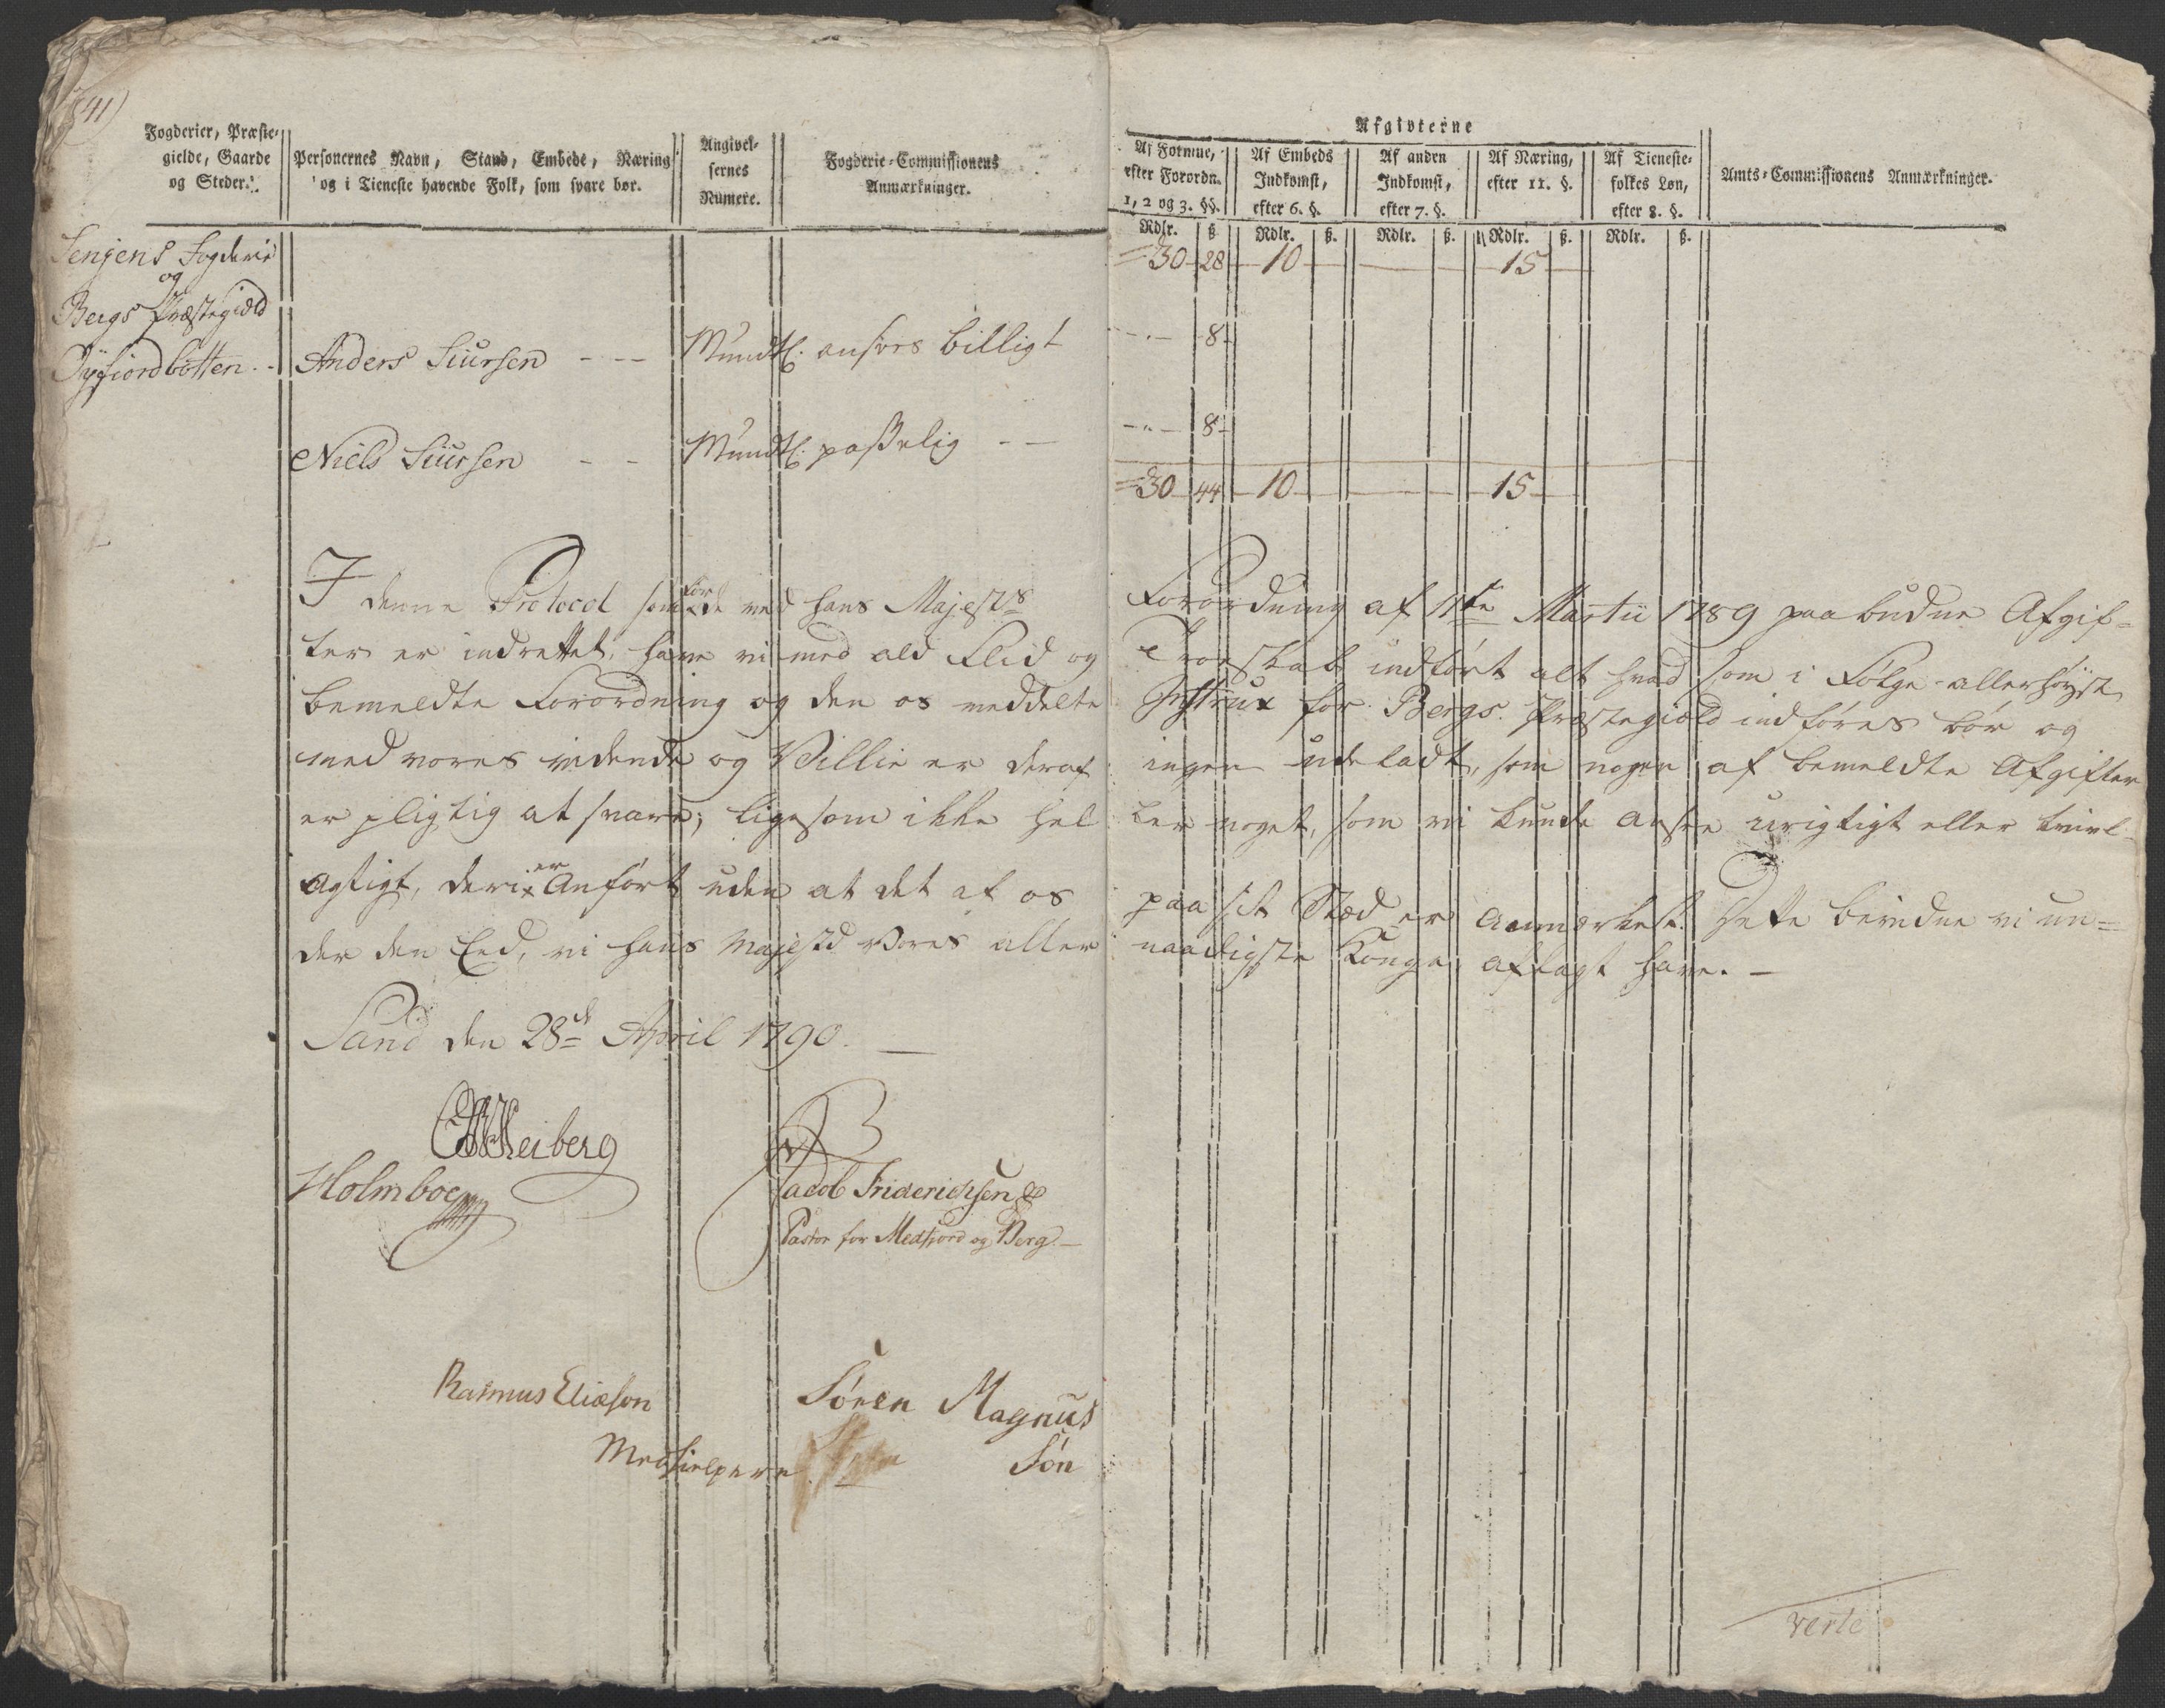 41)
Fogderier, Præste-
gielde, Gaarde
og Steder.
Personernes Navn, Stand, Embede, Næring
og i Tieneste havende Folk, som svare bør.
Angivel-
sernes
Numere.
Fogderie-Commissionens
Anmærkninger.
Afgivterne
Af Formue,
efter Forordn.
1, 2 og 3. §§.
Af Embeds
Indkomst,
efter 6. §.
Af anden
Indkomst,
efter 7. §.
Af Næring,
efter 11. §.
Af Tieneste-
folkes Løn,
efter 8. §.
Amts-Commissionens Anmærkninger.
Rdlr. ß Rdlr. ß. Rdlr. ß. Rdlr. ß. Rdlr. ß.
Senjens Fogderie
og
Bergs Præstegield
30 28 10 15
Anders Siursen - - - Mundtl: ansees billigt 8
Niels Siursen - - Mundtl: passelig - - 8
30 44 10 15
I denne Protocol som for de ved Hans Majests Forordning af 11te Martii 1789 paabudne Afgif-
ter er indrettet, have vi med ald Flid og Troeskab indført alt hvad som i Følge allerhøyst
bemeldte Forordning og den os meddelte Instrux for Bergs Præstegield indføres bør og
med vores vidende og Villie er deraf ingen udeladt, som nogen af bemeldte Afgifter
er pligtig at svare; ligesom ikke hel ler noget, som vi kunde ansee urigtigt eller tvivl-
agtigt, deri er Anført uden at det af os paa sit Stæd er anmærket. Dette bevidne vi un=
der den Eed, vi hans Majestd vores aller naadigste Konge aflagt have. -
Sand den 28de April 1790. -
Heiberg
Holmboe
Jacob Friderichsen
Pastor for Medfiord og Berg. -
Rasmus Eliæson
Søren Magnus
Søn
Medhielpere
verte